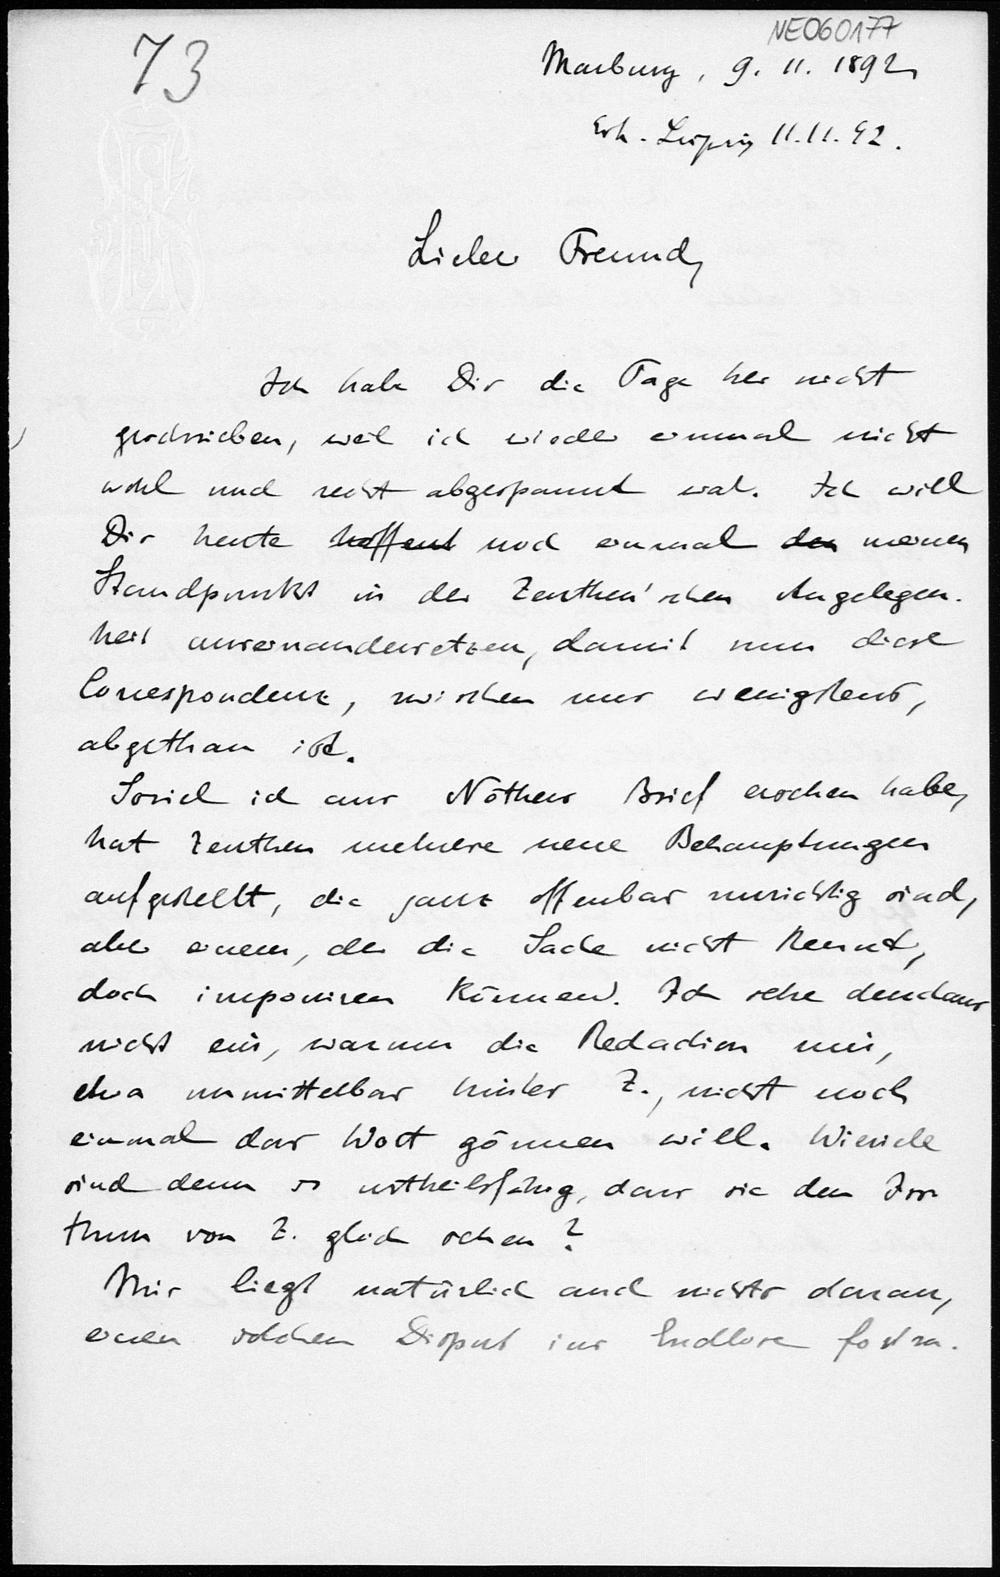 NE060177
73
Marburg, 9. 11. 1892
Erh. Leipzig 11.11.92.
Lieber Freund,
Ich habe Dir die Tage her nicht
geschrieben, weil ich wieder einmal nicht
wohl und recht abgespannt war. Ich will
Dir heute hoffent noch einmal den meinen
Standpunkt in der Zeuthen'schen Angelegen-
heit auseinandersetzen, damit nun diese
Correspondenz, zwischen uns wenigstens,
abgethan ist.
Soviel ich aus Nöthers Brief ersehen habe,
hat Zeuthen mehrere neue Behauptungen
aufgestellt, die ganz offenbar unrichtig sind,
aber einem, der die Sache nicht kennt,
doch imponiren können. Ich sehe durchaus
nicht ein, warum die Redaction mir,
etwa unmittelbar hinter Z., nicht noch
einmal das Wort gönnen will. Wieviele
sind denn so urtheilsfähig, dass sie den Irr
thum von Z. gleich sehen?
Mir liegt natürlich auch nichts daran,
einen solchen Disput ins Endlose fortzu-